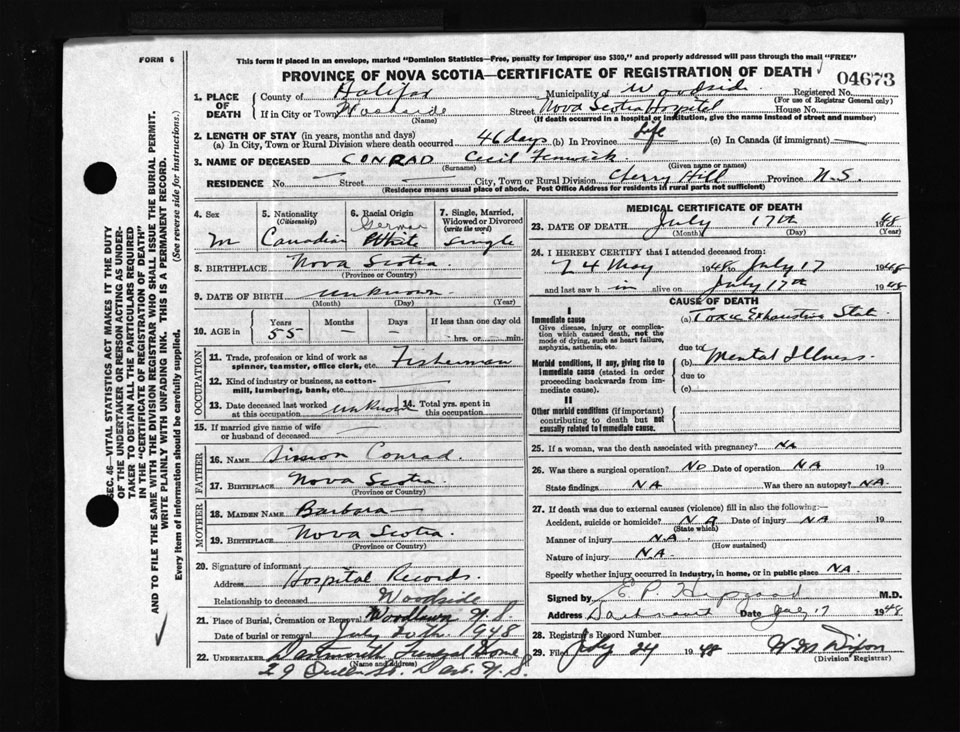 FORM 6
This form if placed in an envelope, marked "Dominion Statistics—Free, penalty for improper use $300," and properly addressed will pass through the mail "FREE"
PROVINCE OF NOVA SCOTIA—CERTIFICATE OF REGISTRATION OF DEATH
04673
1. PLACE OF DEATH
County of Halifax Municipality of Woodside Registered No.
(For use of Registrar General only)
If in City or Town Woodside Street Nova Scotia Hospital House No.
(Name) (If death occurred in a hospital or institution, give the name instead of street and number)
2. LENGTH OF STAY (in years, months and days)
(a) In City, Town or Rural Division where death occurred 46 days (b) In Province Life (c) In Canada (if immigrant)
3. NAME OF DECEASED CONRAD Cecil Fenwick
(Surname) (Given name or names)
RESIDENCE No. — Street — City, Town or Rural Division Cherry Hill Province N.S.
(Residence means usual place of abode. Post Office Address for residents in rural parts not sufficient)
4. Sex M
5. Nationality (Citizenship) Canadian
6. Racial Origin German White
7. Single, Married, Widowed or Divorced (write the word) Single
8. BIRTHPLACE Nova Scotia
(Province or Country)
9. DATE OF BIRTH unknown
(Month) (Day) (Year)
10. AGE in Years 55 Months — Days — If less than one day old — hrs. or — min.
OCCUPATION
11. Trade, profession or kind of work as spinner, teamster, office clerk, etc. Fisherman
12. Kind of industry or business, as cotton-mill, lumbering, bank, etc. —
13. Date deceased last worked at this occupation unknown
14. Total yrs. spent in this occupation —
15. If married give name of wife or husband of deceased —
FATHER
16. NAME Simon Conrad.
17. BIRTHPLACE Nova Scotia
(Province or Country)
MOTHER
18. MAIDEN NAME Barbara —
19. BIRTHPLACE Nova Scotia.
(Province or Country)
20. Signature of informant
Address Hospital Records.
Relationship to deceased Woodside
21. Place of Burial, Cremation or Removal Woodlawn N.S
Date of burial or removal July 20th 1948
22. UNDERTAKER Dartmouth Funeral Home
(Name and address)
29 Queen St. Dart. N.S.
MEDICAL CERTIFICATE OF DEATH
23. DATE OF DEATH July 17th 1948
(Month) (Day) (Year)
24. I HEREBY CERTIFY that I attended deceased from:
24 May 1948 to July 17 1948
and last saw h im alive on July 17th 1948
CAUSE OF DEATH
I
Immediate cause
Give disease, injury or complication which caused death, not the mode of dying, such as heart failure, asphyxia, asthenia, etc.
(a) Toxic Exhaustive State
due to
Morbid conditions, if any, giving rise to immediate cause (stated in order proceeding backwards from immediate cause).
(b) Mental Illness.
due to
(c)
II
Other morbid conditions (if important) contributing to death but not causally related to immediate cause.
25. If a woman, was the death associated with pregnancy? NA
26. Was there a surgical operation? NO Date of operation NA 19
State findings NA Was there an autopsy? NA
27. If death was due to external causes (violence) fill in also the following:—
Accident, suicide or homicide? NA Date of injury NA 19
(State which)
Manner of injury N.A.
(How sustained)
Nature of injury N.A.
Specify whether injury occurred in industry, in home, or in public place NA
Signed by E P M.D.
Address Dartmouth Date July 17 1948
28. Registrar's Record Number
29. Filed July 24 1948 W M Dixon
(Division Registrar)
SEC. 46—VITAL STATISTICS ACT MAKES IT THE DUTY
OF THE UNDERTAKER OR PERSON ACTING AS UNDER-
TAKER TO OBTAIN ALL THE PARTICULARS REQUIRED
IN THE "CERTIFICATE OF REGISTRATION OF DEATH"
AND TO FILE THE SAME WITH THE DIVISION REGISTRAR WHO SHALL ISSUE THE BURIAL PERMIT.
WRITE PLAINLY WITH UNFADING INK. THIS IS A PERMANENT RECORD.
Every item of information should be carefully supplied. (See reverse side for instructions.)